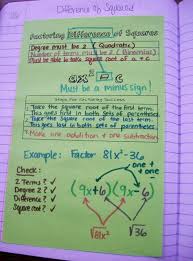 Difference of Squares
Factoring Difference of Squares
Degree must be 2 (Quadratic)
Number of terms must be 2 (Binomial)
Must be able to take square root of a + c
ax² - c
Must be a minus sign!
Steps for Factoring Success
- Take the square root of the first term.
This goes first in both sets of parentheses.
- Take the square root of the last term.
This goes last in both sets of parentheses.
- Make one addition + one subtraction
Example: Factor 81x² - 36
one +
one -
Check:
2 Terms? ✓
Degree 2? ✓
Difference? ✓
Square root? ✓
(9x+6)(9x-6)
√81x²
√36